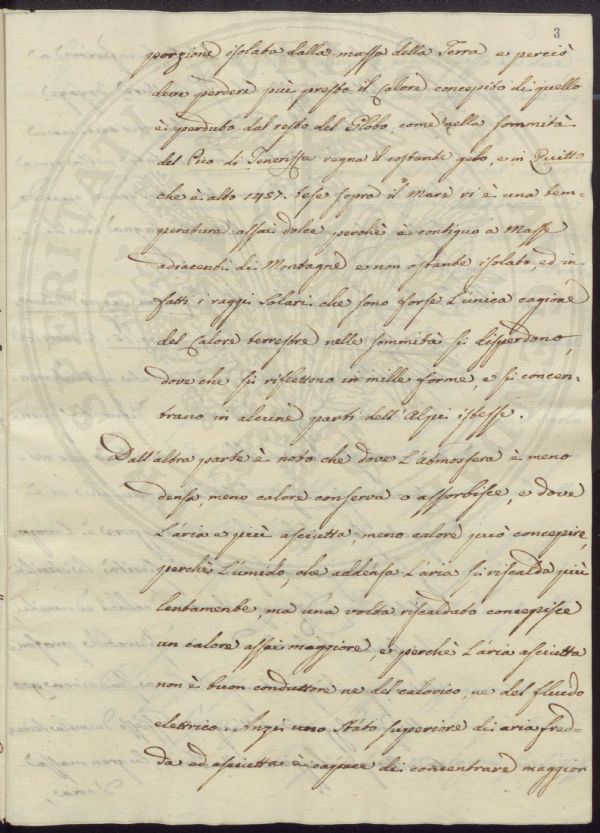 3
porzione isolata dalla massa della Terra e perciò
deve perdere più presto il Calore concepito di quello
è perduto dal resto del Globo, come nella sommità
del Pico di Teneriffa regna il costante gelo, e in Quitto
che è alto 1457. tese sopra il Mare vi è una tem=
peratura assai dolce perchè è contiguo a Masse
adiacenti di Montagne e non ostante isolato, ed in
fatti i raggi Solari che sono forse l'unica cagione
del Calore terrestre nelle sommità si disperdono,
dove che si riflettono in mille forme e si concen=
trano in alcune parti dell'Alpi istesse.
Dall'altra parte è noto che dove l'atmosfera è meno
densa, meno calore conserva o assorbisce, e dove
l'aria e più asciutta, meno calore può concepire,
perchè l'umido, che addensa l'aria si riscalda più
lentamente, ma una volta riscaldato concepisce
un calore assai maggiore, e perchè l'aria asciutta
non è buon conduttore ne del calorico, ne del fluido
elettrico. Anzi uno stato superiore di aria fred=
da ed asciutta è capace di concentrare maggior